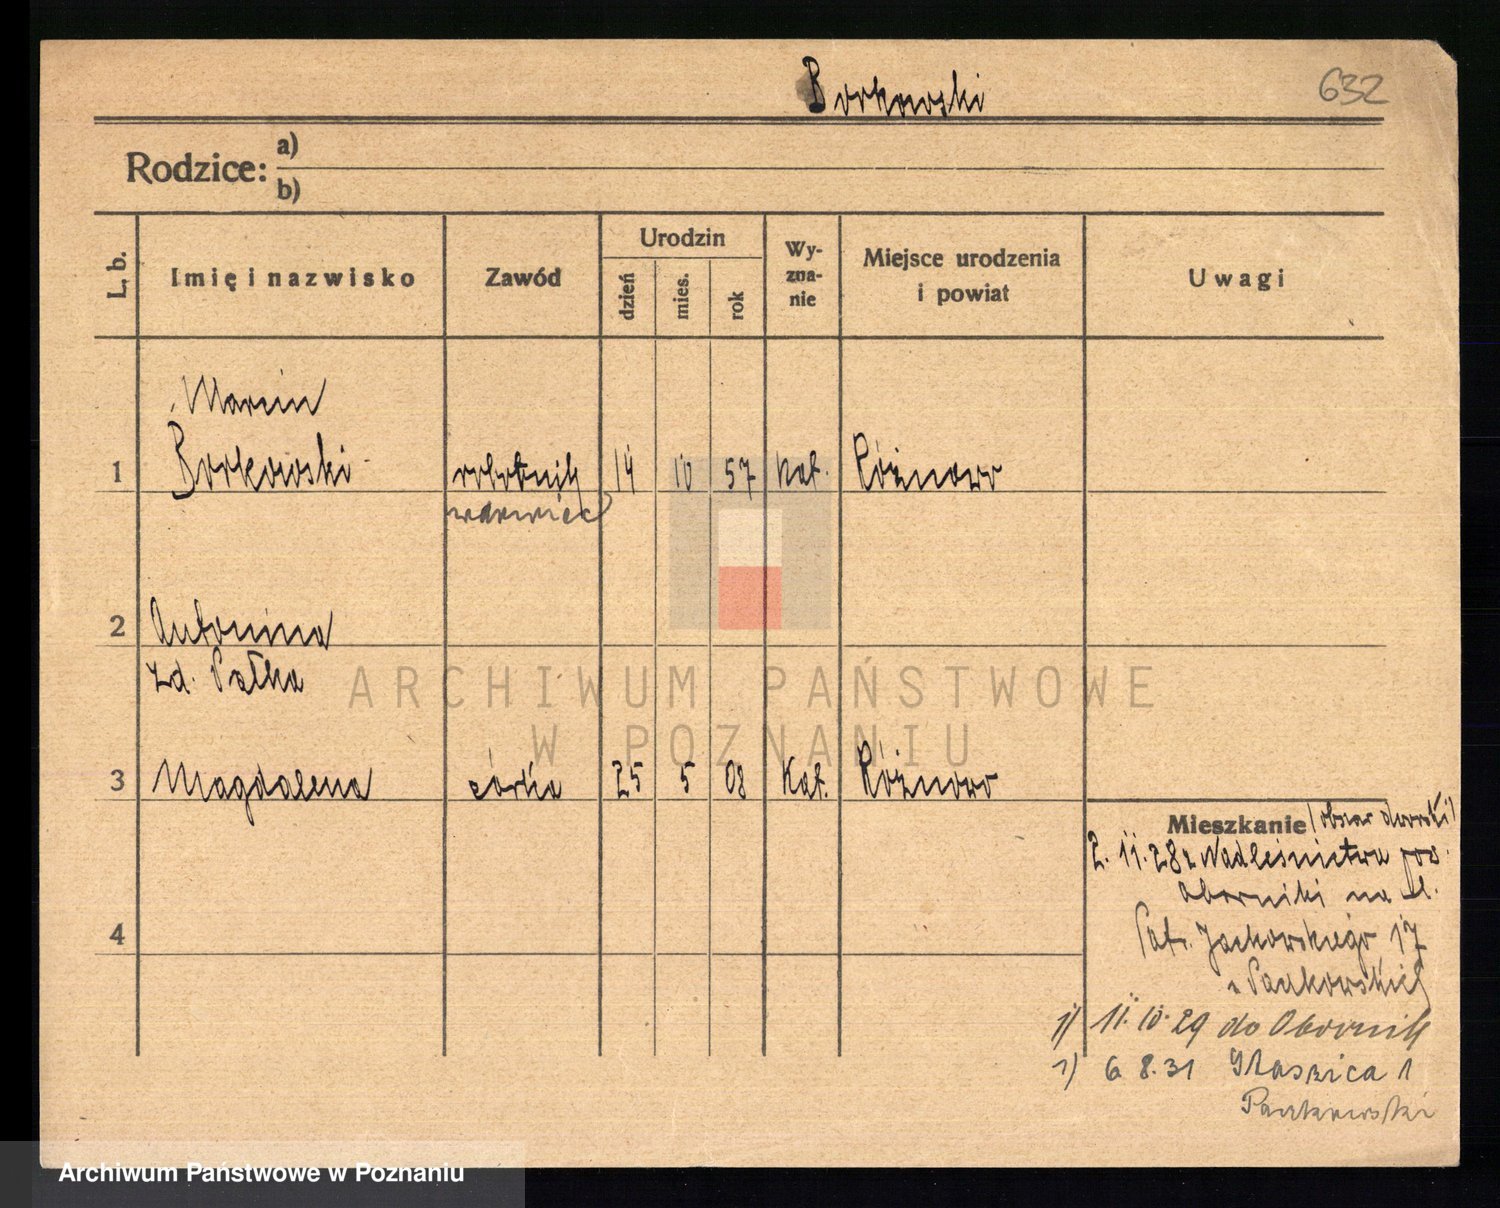 Borkowski
632
Rodzice: a)
b)
L. b.
Imię i nazwisko
Zawód
Urodzin
dzień
mies.
rok
Wy-
zna-
nie
Miejsce urodzenia
i powiat
Uwagi
Marcin
1 Borkowski robotnik 14 10 57 kat. Różnowo
wdowiec
2 Antonina
zd. Pałka
3 Magdalena córka 25 5 08 Kat. Różnowo
4
Mieszkanie /obszar dworski/
2. 11. 28 z Nadleśnictwa pow.
Oborniki na ul.
Patr. Jackowskiego 17
1) 11. 10. 29 do Obornik
1) 6 8. 31 Ptaszkowski
ARCHIWUM PAŃSTWOWE
W POZNANIU
Archiwum Państwowe w Poznaniu